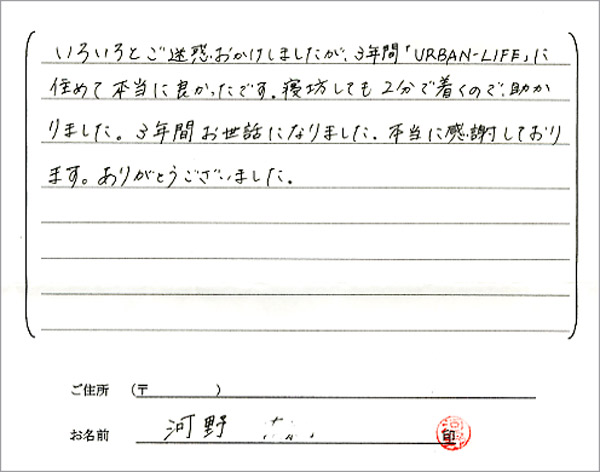 いろいろとご迷惑おかけしましたが、3年間「URBAN-LIFE」に
住めて本当に良かったです。寝坊しても2分で着くので、助か
りました。3年間お世話になりました。本当に感謝しており
ます。ありがとうございました。
ご住所 (〒 )
お名前 河野
印